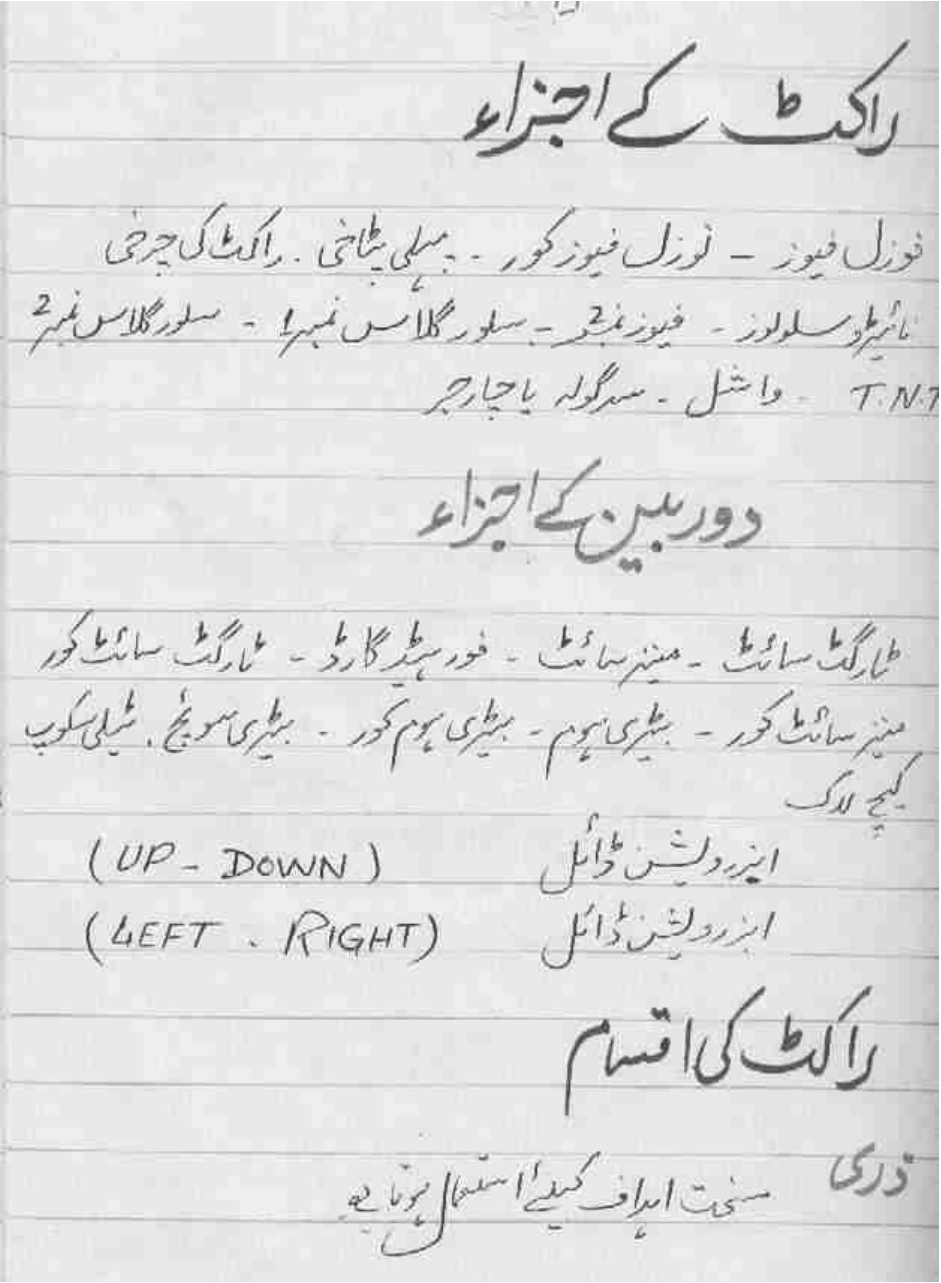 راکٹ کے اجزاء
نوزل فیوز - نوزل فیوز کور - پہلی پٹاخی . راکٹ کی چرخی
نائیٹروسلولوز - فیوز نمبر2 - سلور گلاس نمبر1 - سلور گلاس نمبر2
T.N.T - واشل - سرگولہ یا چارجر
دوربین کے اجزاء
ٹارگٹ سائٹ - مینز سائٹ - فورہیڈ گارڈ - ٹارگٹ سائٹ کور
مینز سائٹ کور - بیٹری ہوم - بیٹری ہوم کور - بیٹری سونچ . ٹیلی سکوپ
کیچ لاک
ابزرویشن ڈائل (UP - DOWN)
ابزرویشن ڈائل (LEFT . RIGHT)
راکٹ کی اقسام
ذری سخت اہداف کیلئے استعمال ہوتا ہے